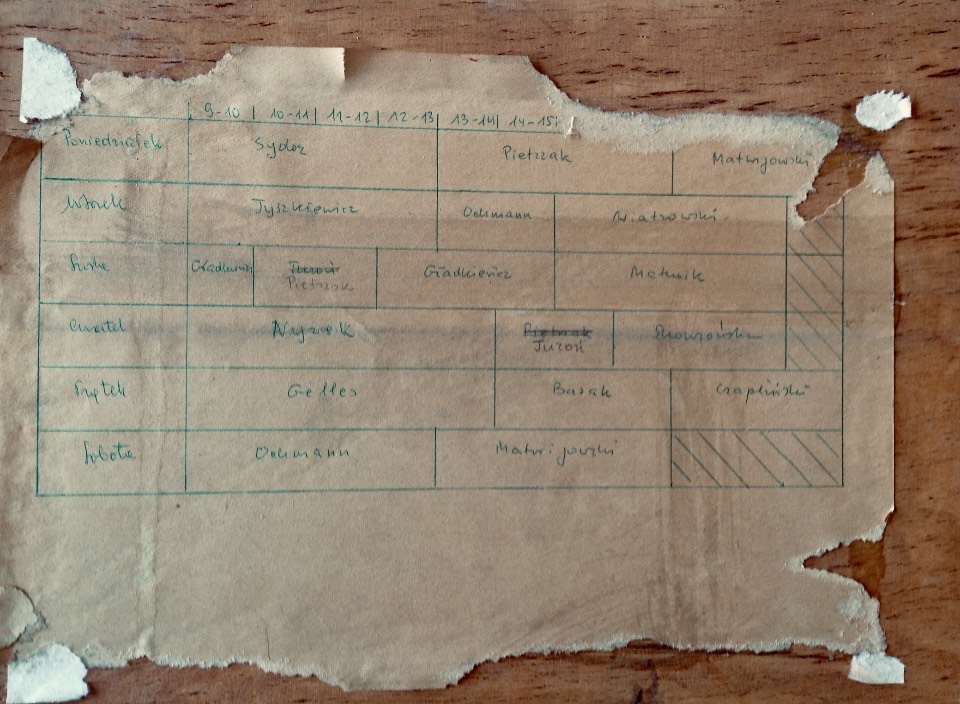 9-10 | 10-11 | 11-12 | 12-13 | 13-14 | 14-15
Poniedziałek Sydor Pietrzak Matwijowski
Wtorek Tyszkiewicz Ochmann Wiatrowski
Środa Gładkiewicz Juroń Gładkiewicz Matwik
Pietrzak
Czwartek Nyrek Pietrzak Skowrońska
Juroń
Piątek Gelles Basak Czapliński
Sobota Ochmann Matwijowski